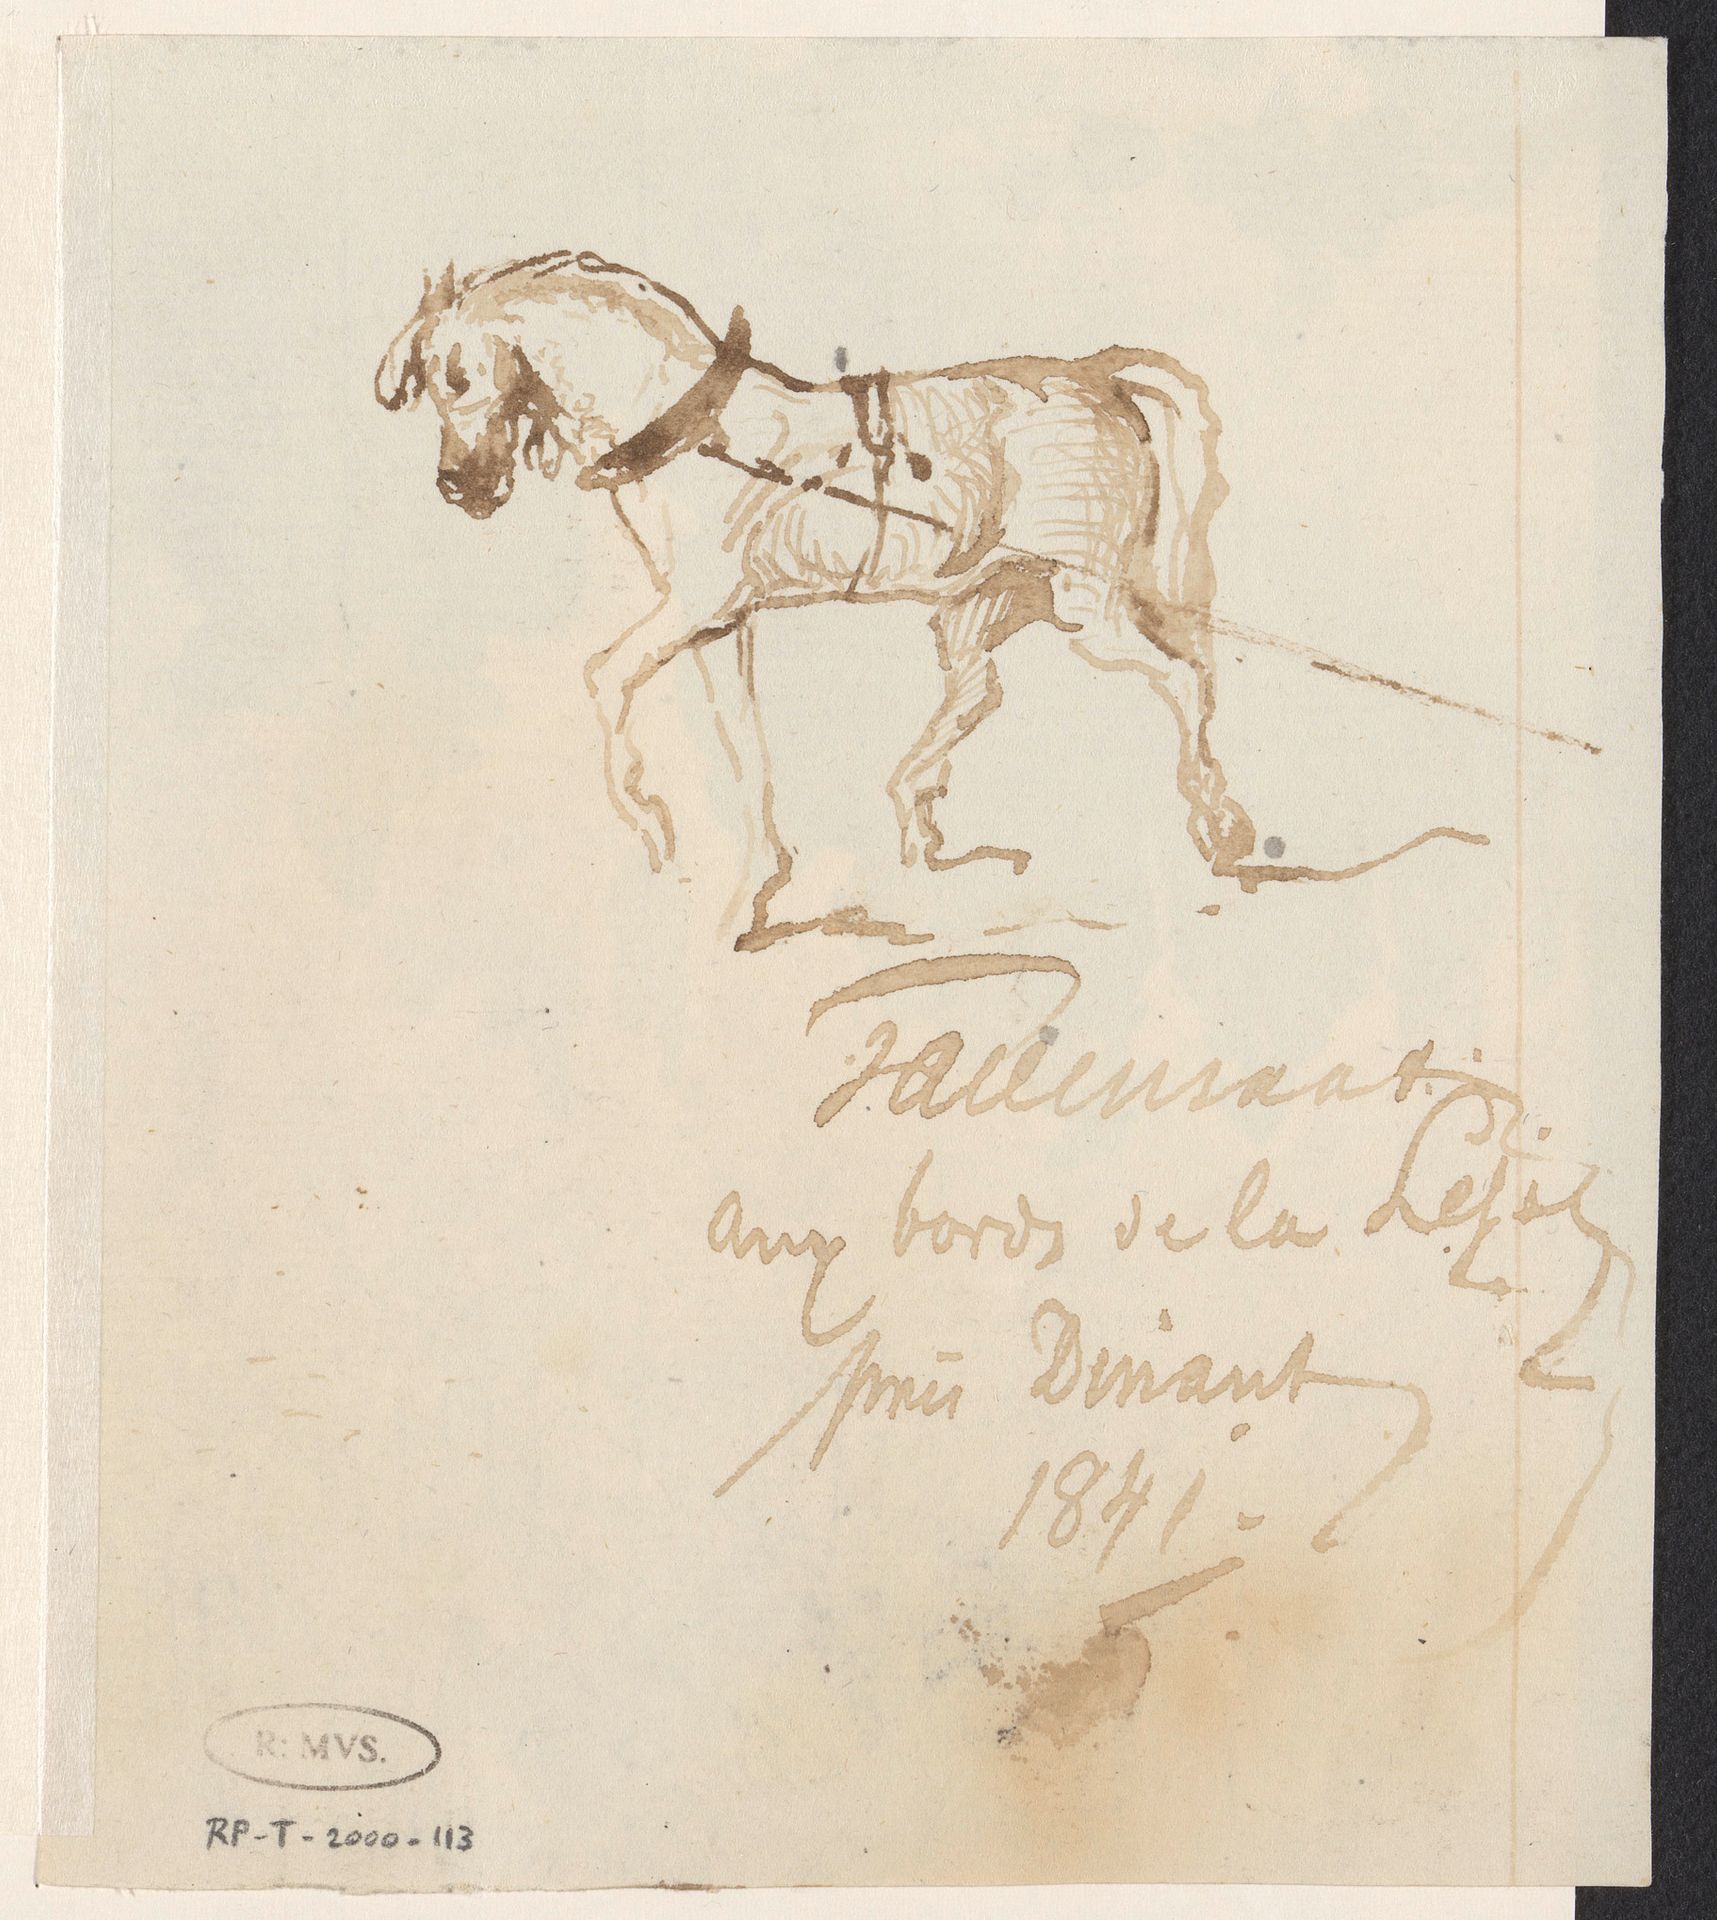 JTavenraat.
aux bords de la Lesse
près Dinant
1841.
R: MVS.
RP-T-2000-113